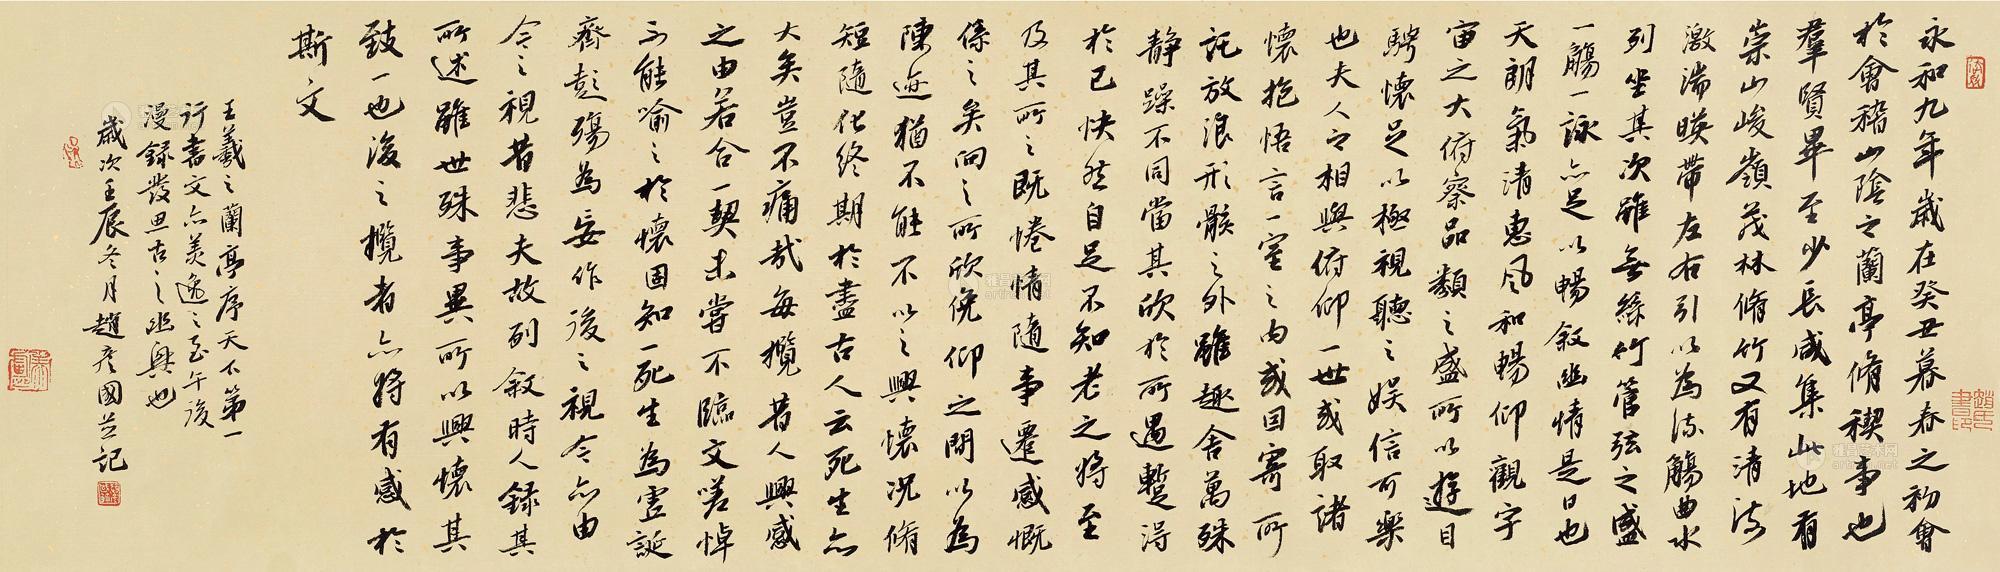 永和九年歲在癸丑暮春之初會
於會稽山陰之蘭亭脩稧事也
羣賢畢至少長咸集此地有
崇山峻嶺茂林脩竹又有清流
激湍暎帶左右引以為流觴曲水
列坐其次雖無絲竹管弦之盛
一觴一詠亦足以暢敘幽情是日也
天朗氣清惠風和暢仰觀宇
宙之大俯察品類之盛所以遊目
騁懷足以極視聽之娛信可樂
也夫人之相與俯仰一世或取諸
懷抱悟言一室之內或因寄所
託放浪形骸之外雖趣舍萬殊
静躁不同當其欣於所遇蹔得
於己快然自足不知老之將至
及其所之既惓情隨事遷感慨
係之矣向之所欣俛仰之間以為
陳迹猶不能不以之興懷況脩
短隨化終期於盡古人云死生亦
大矣豈不痛哉每攬昔人興感
之由若合一契未嘗不臨文嗟悼
不能喻之於懷固知一死生為虛誕
齊彭殤為妄作後之視今亦由
今之視昔悲夫故列敘時人録其
所述雖世殊事異所以興懷其
致一也後之攬者亦將有感於
斯文
王羲之蘭亭序天下第一
行書文亦美逸之至午後
漫録發思古之幽興也
歲次壬辰冬月趙彥國並記
趙氏書印